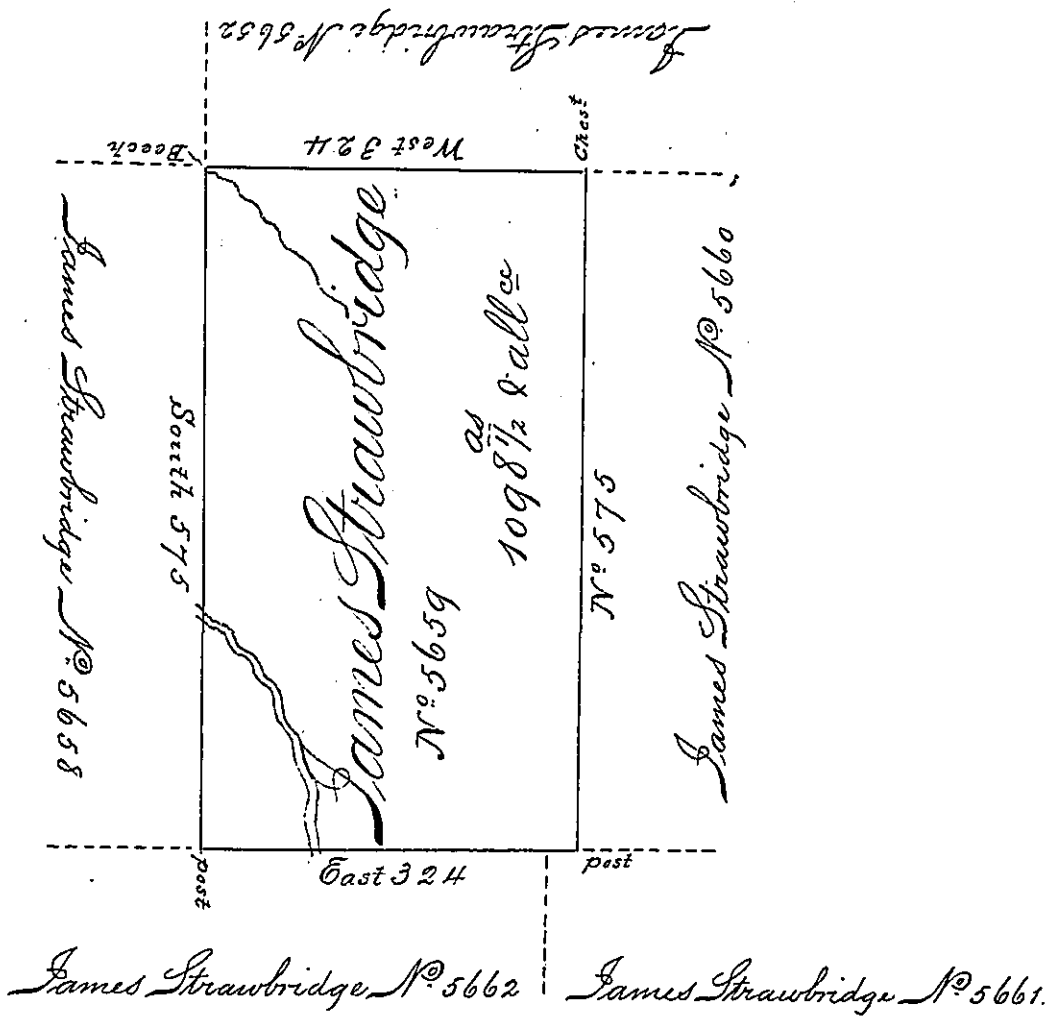 James Strawbridge Nº 5652
West 324
Beech
Chest
James Strawbridge Nº 5658
South 575
James Strawbridge
Nº 5659
as
1098 1/2 & allce
Nº 575
James Strawbridge Nº 5660
post
East 324
post
James Strawbridge Nº 5662
James Strawbridge Nº 5661.